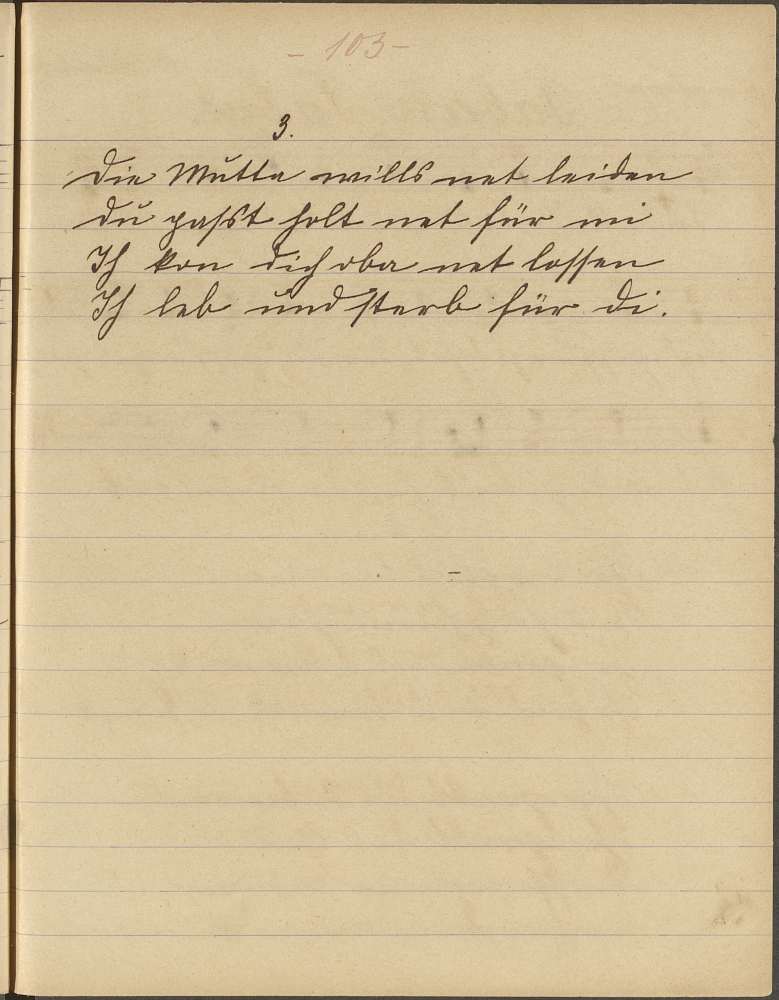 - 103 -
3.
Die Mutta wills net leiden
Du paßst holt net für mi
Ich kon dich oba net lossen
Ich leb und sterb für di.